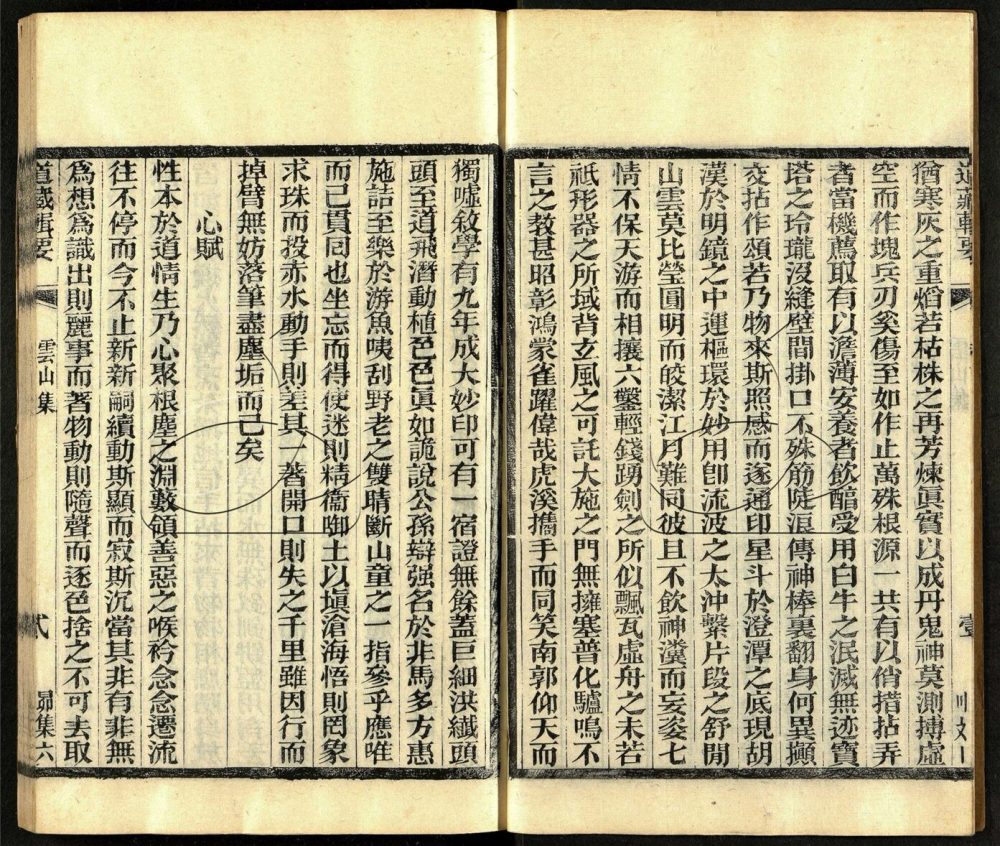 道藏輯要
猶寒灰之重焰若枯株之再芳煉眞實以成丹鬼神莫測摶虛
空而作塊兵刃奚傷至如作止萬殊根源一共有以俏措拈弄
者當機薦取有以澹薄安養者飲醯受用白牛之泯滅無迹寶
塔之玲瓏沒縫壁間掛口不殊筋陡滬傳神棒裏翻身何異攧
交拈作頌若乃物來斯照感而遂通印星斗於澄潭之底現胡
漢於明鏡之中運樞環於妙用卽流波之太沖繫片段之舒閒
山雲莫比瑩圓明而皎潔江月難同彼且不飲神瀵而妄姿七
情不保天游而相攘六鑿輕錢踴劍之所似飄瓦虛舟之未若
祇形器之所域背立風之可託大施之門無擁塞普化驢鳴不
言之教甚昭彰鴻蒙雀躍偉哉虎溪攜手而同笑南郭仰天而
獨噓敘學有九年成大妙印可有一宿證無餘蓋巨細洪纖頭
頭至道飛潛動植色色眞如詭說公孫辯强名於非馬多方惠
施詰至樂於游魚咦刮野老之雙睛斷山童之一指參乎應唯
而已貫回也坐忘而得便迷則精衞啣土以塡滄海悟則罔象
求珠而投赤水動手則差其一著開口則失之千里雖因行而
掉臂無妨落筆盡塵垢而已矣
心賦
性本於道情生乃心聚根塵之淵藪領善惡之喉衿念念遷流
往不停而今不止新新嗣續動斯顯而寂斯沉當其非有非無
爲想爲識出則麗事而著物動則隨聲而逐色捨之不可去取
道藏輯要 雲山集 弍 昴集六